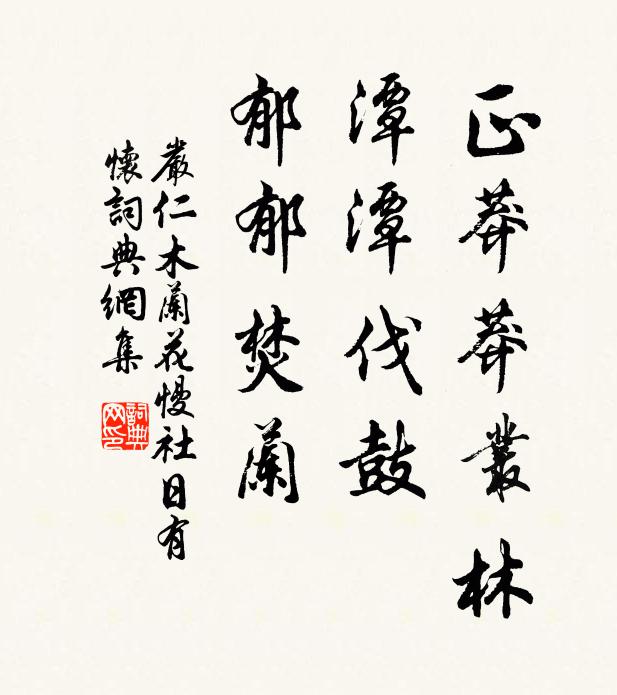 正莽莽叢林
潭潭伐鼓
郁郁焚蘭
嚴仁木蘭花慢社日有
懷詞典網集
詞典网印